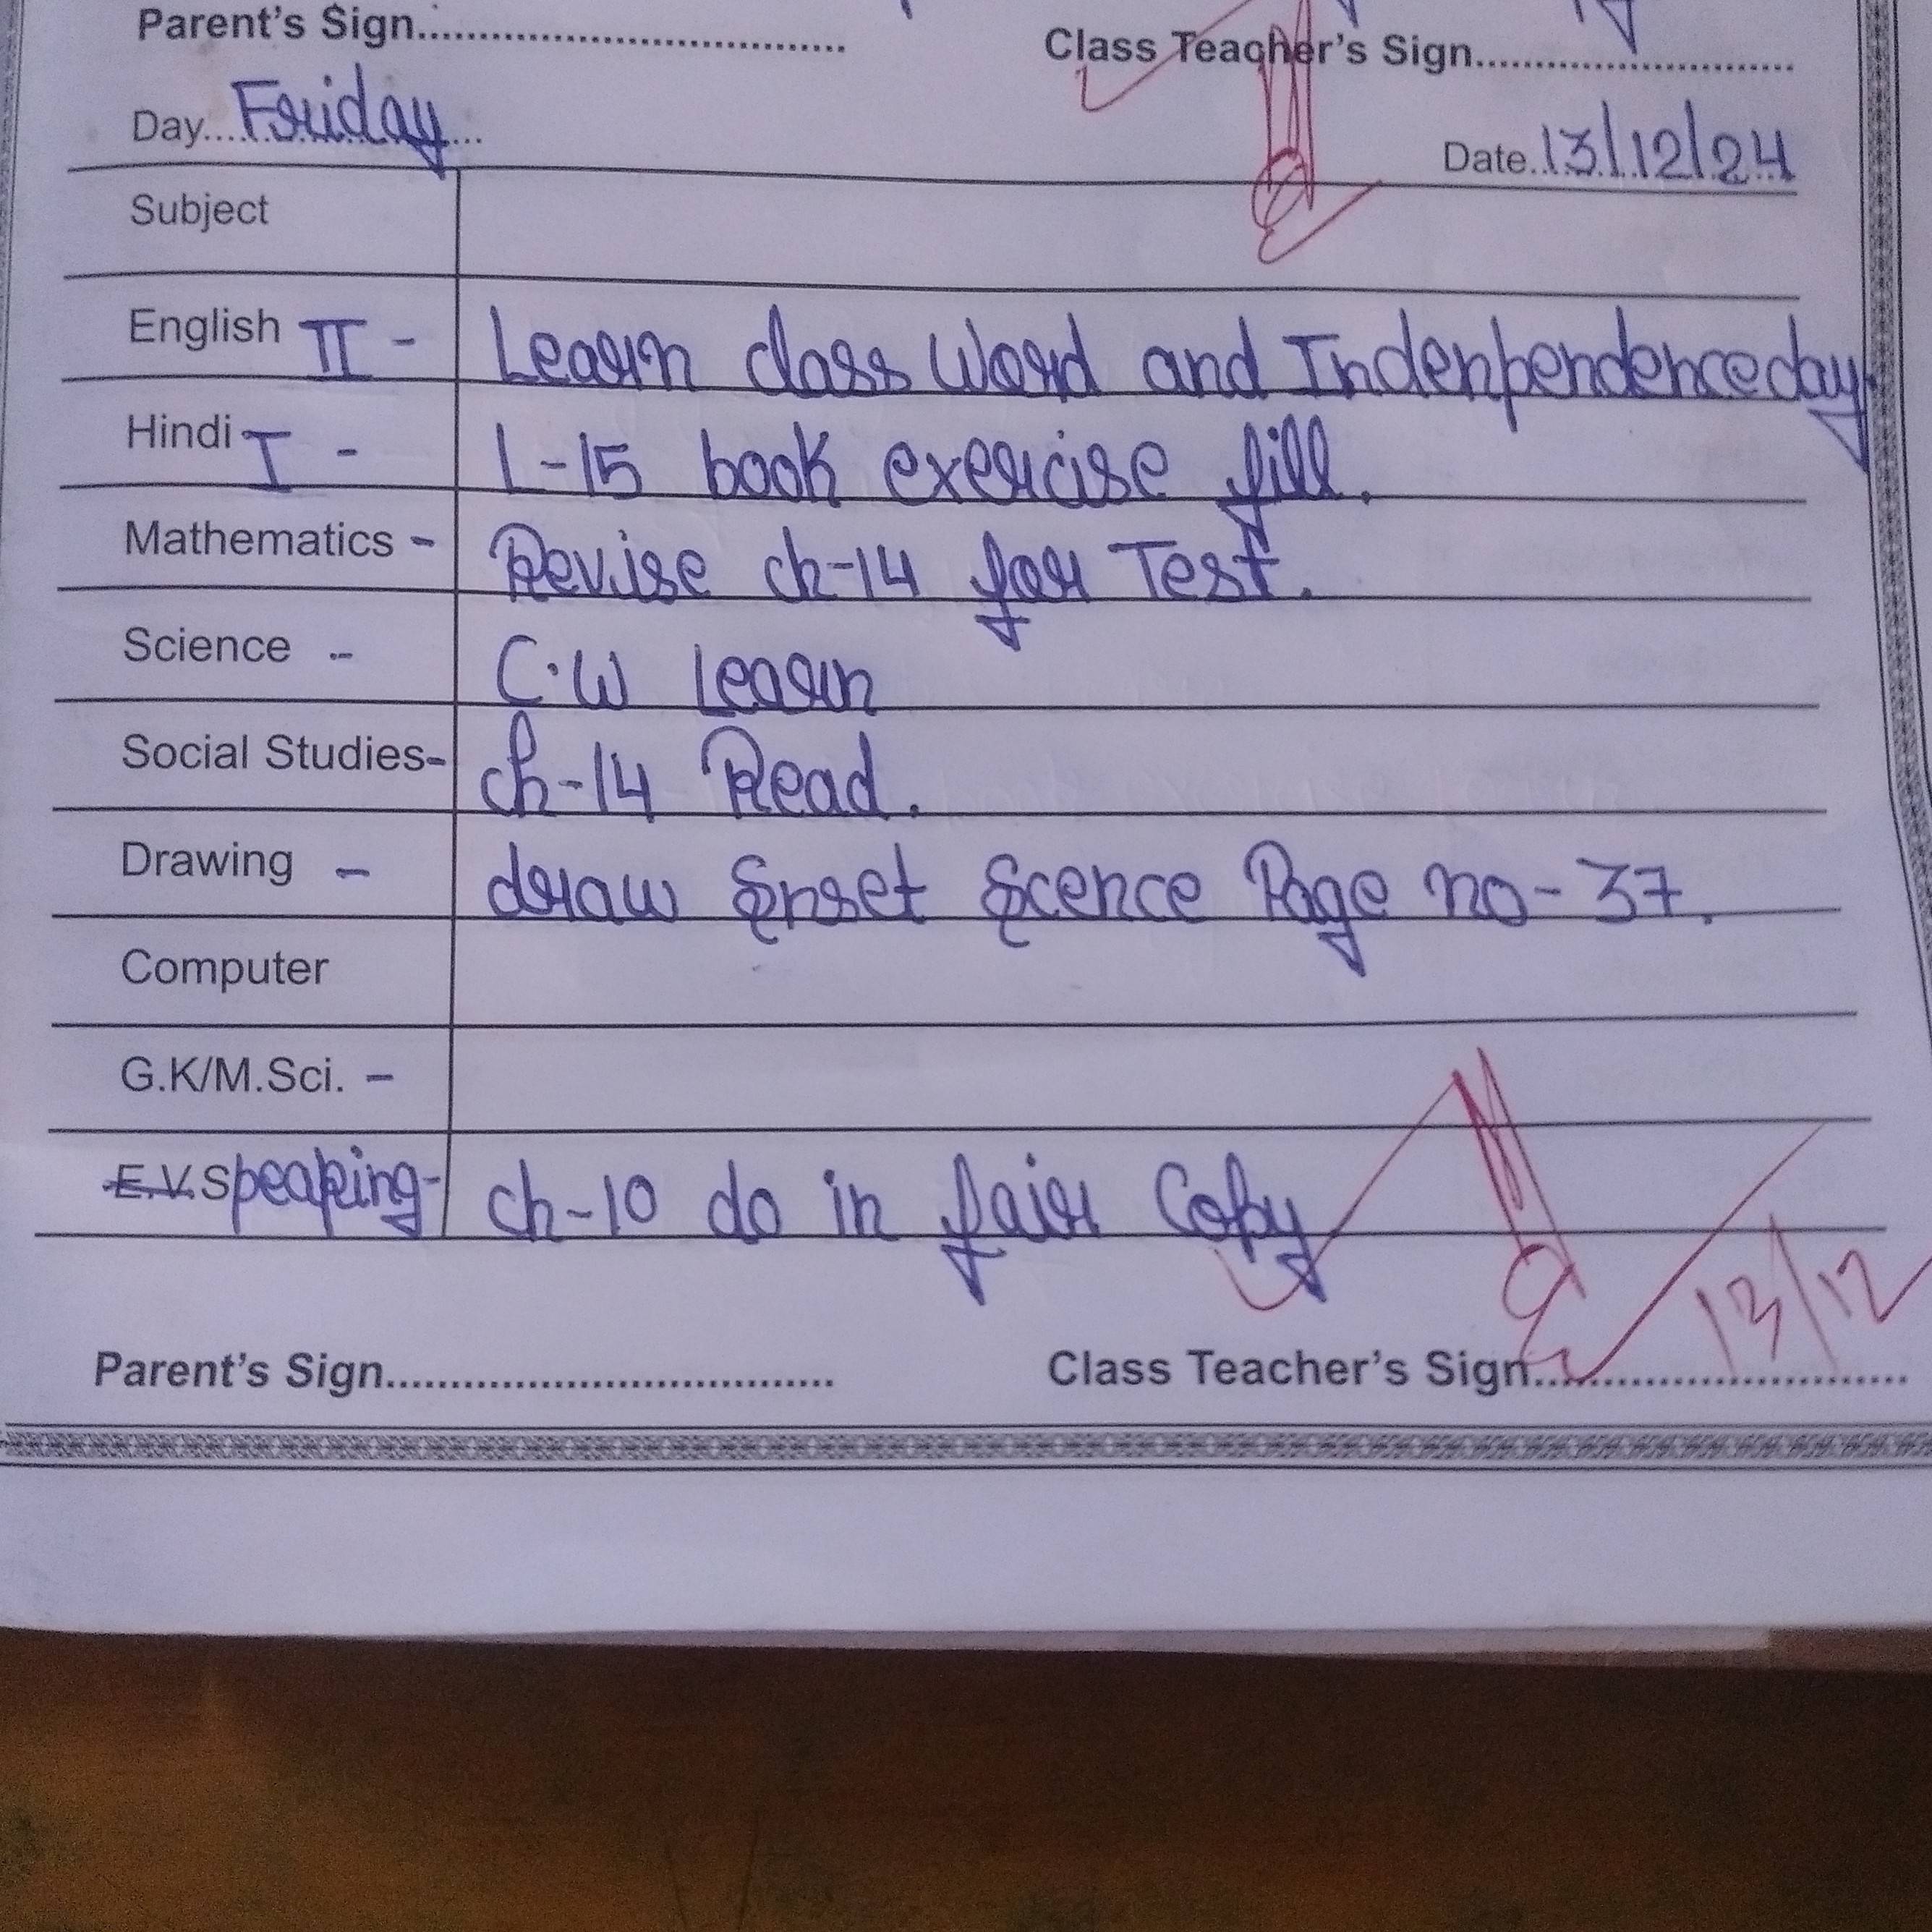 Parent's Sign.......................................
Class Teacher's Sign............................
Day....Friday...
Date..13/12/24
Subject
English II - Learn class word and Indenpendence day.
Hindi I - L-15 book exercise fill.
Mathematics - Revise ch-14 for Test.
Science - C.W Learn
Social Studies- ch-14 Read.
Drawing - draw Snset Scence Page no-37.
Computer
G.K/M.Sci. -
E.V.Speaking- ch-10 do in fair Copy
13/12
Parent's Sign.......................................
Class Teacher's Sign.................................